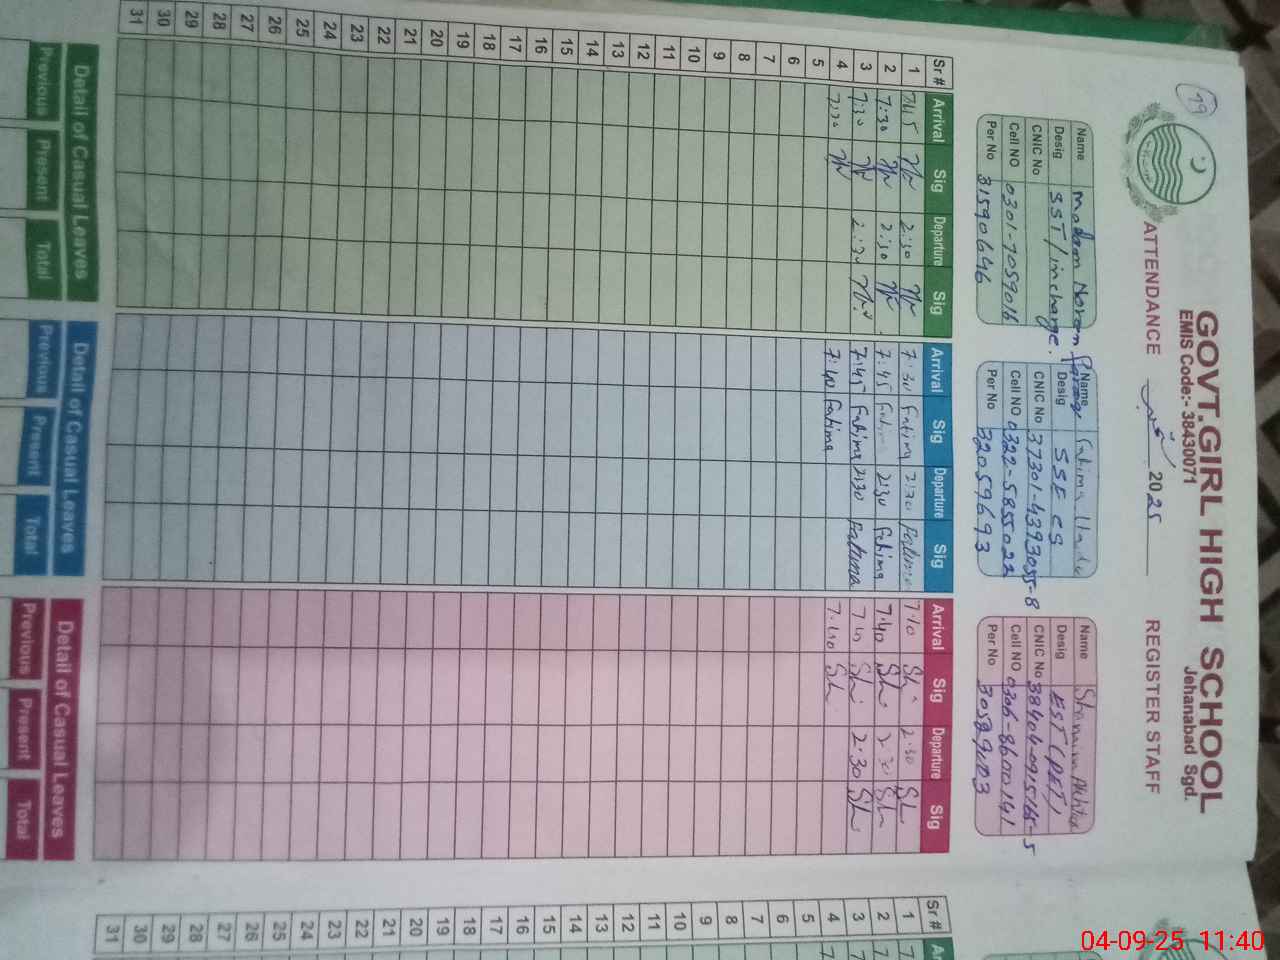 19
GOVT.GIRL HIGH SCHOOL
EMIS Code:- 38430071
Jehanabad Sgd.
ATTENDANCE 2025 REGISTER STAFF
Name
Desig SST/incharge.
CNIC No
Cell NO 0301-7059016
Per No 31590646
Name Fatima
Desig SSE CS
CNIC No 37301-4393055-8
Cell NO 0322-5855022
Per No 32059693
Name Akhtar
Desig EST (PET)
CNIC No
Cell NO 0306-8600141
Per No
Sr # Arrival Sig Departure Sig Arrival Sig Departure Sig Arrival Sig Departure Sig
1 7:15 2:30 7:30 Fatima 2:30 Fatima 7:10 Sh 2:30 Sh
2 7:30 2:30 7:45 Fatima 2:30 Fatima 7:40 Sh 2:30 Sh
3 7:30 2:30 7:45 Fatima 2:30 Fatima 7:40 Sh 2:30 Sh
4 7:30 7:40 Fatima 7:40 Sh
5
6
7
8
9
10
11
12
13
14
15
16
17
18
19
20
21
22
23
24
25
26
27
28
29
30
31
Detail of Casual Leaves
Previous Present Total
Detail of Casual Leaves
Previous Present Total
Detail of Casual Leaves
Previous Present Total
Sr #
1 7
2 7
3 7
4 7
5
6
7
8
9
10
11
12
13
14
15
16
17
18
19
20
21
22
23
24
25
26
27
28
29
30
31
04-09-25 11:40